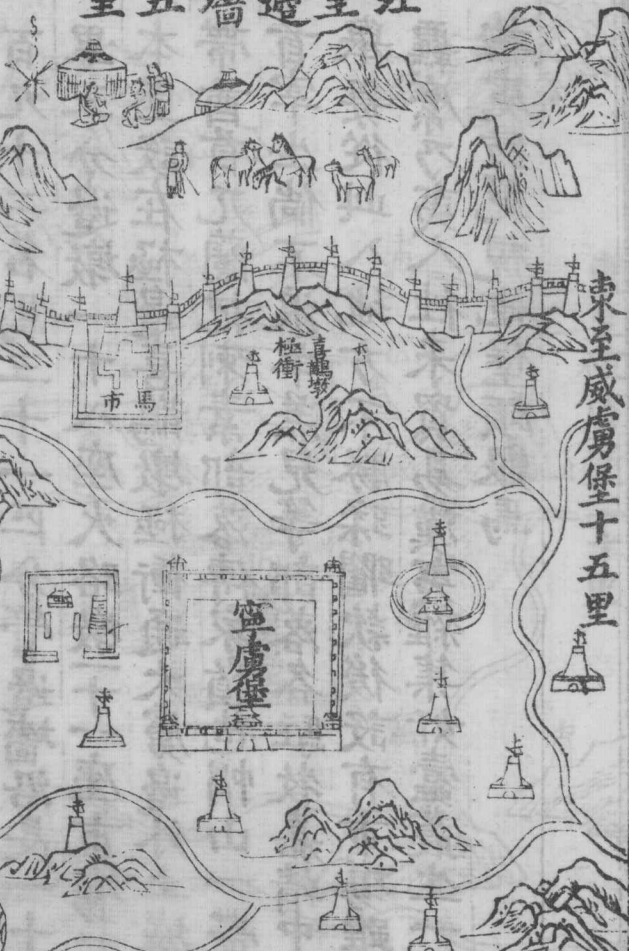 北至邊墻五里
東至威虜堡十五里
喜鵲墩
極衝
馬市
寧虜堡